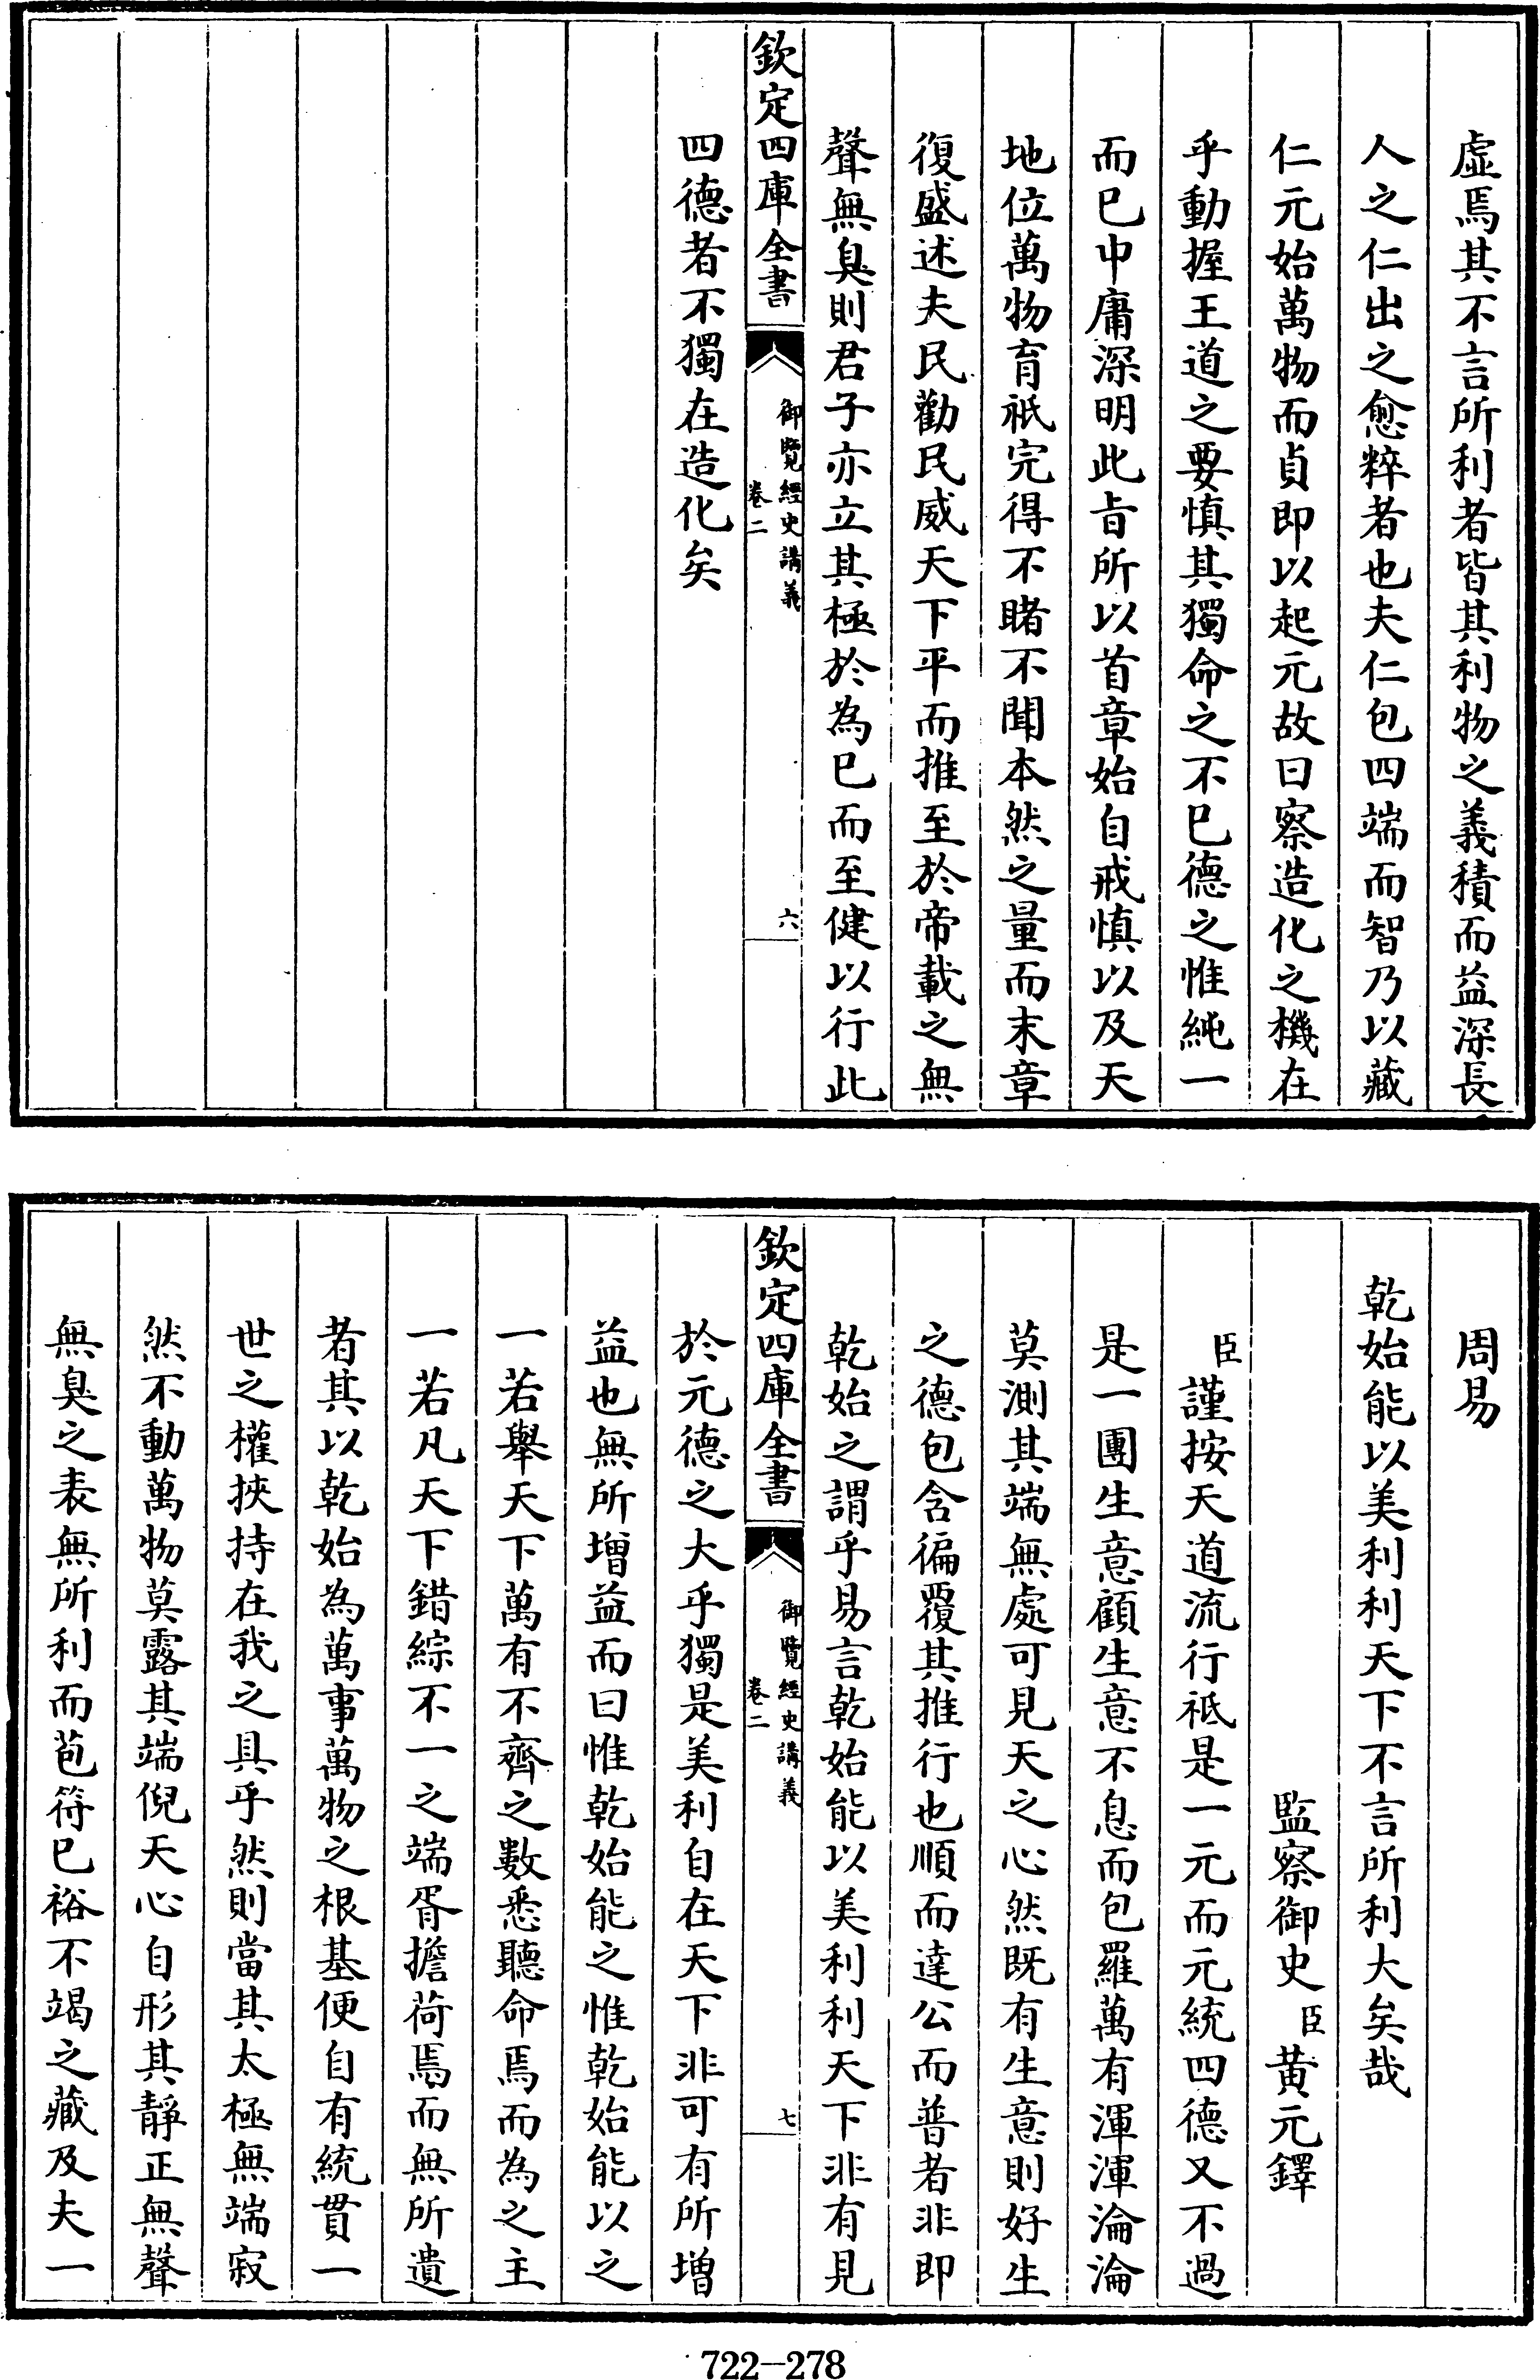 虛焉其不言所利者皆其利物之義積而益深長
人之仁出之愈粹者也夫仁包四端而智乃以藏
仁元始萬物而貞即以起元故曰察造化之機在
乎動握王道之要慎其獨命之不已德之惟純一
而已中庸深明此旨所以首章始自戒慎以及天
地位萬物育祇完得不睹不聞本然之量而末章
復盛述夫民勸民威天下平而推至於帝載之無
聲無臭則君子亦立其極於為已而至健以行此
欽定四庫全書
御覽經史講義
卷二
六
四德者不獨在造化矣
周易
乾始能以美利利天下不言所利大矣哉
監察御史臣黃元鐸
臣謹按天道流行祗是一元而元統四德又不過
是一團生意顧生意不息而包羅萬有渾渾淪淪
莫測其端無處可見天之心然既有生意則好生
之德包含徧覆其推行也順而達公而普者非即
乾始之謂乎易言乾始能以美利利天下非有見
欽定四庫全書
御覽經史講義
卷二
七
於元德之大乎獨是美利自在天下非可有所增
益也無所增益而曰惟乾始能之惟乾始能以之
一若舉天下萬有不齊之數悉聽命焉而為之主
一若凡天下錯綜不一之端胥擔荷焉而無所遺
者其以乾始為萬事萬物之根基便自有統貫一
世之權挾持在我之具乎然則當其太極無端寂
然不動萬物莫露其端倪天心自形其靜正無聲
無臭之表無所利而苞符已裕不竭之藏及夫一
722—278